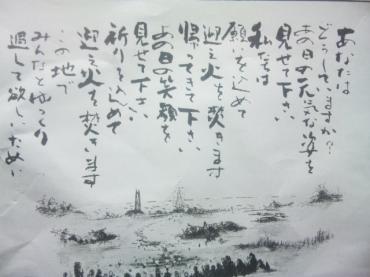 あなたは
どうしていますか?
あの日の元気な姿を
見せて下さい
私たちは
願を込めて
迎え火を焚きます
帰ってきて下さい
あの日の笑顔を
見せて下さい
祈りを込めて
迎え火を焚きます
この地で
みんなとゆっくり
過して欲しいために